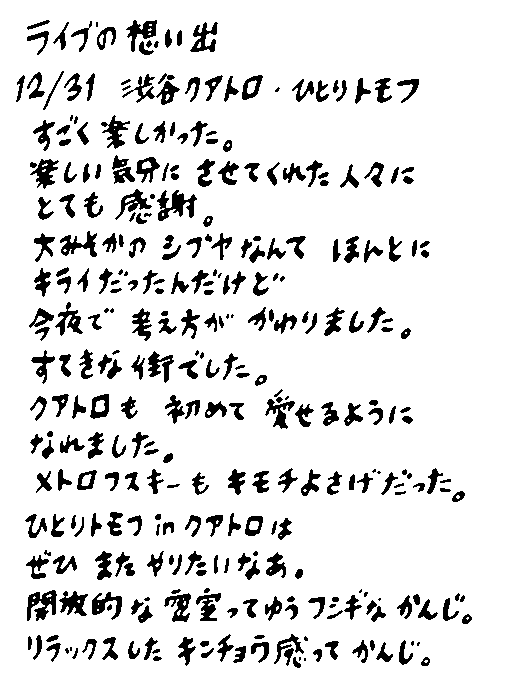 ライブの想い出
12/31 渋谷クアトロ・ひとりトモフ
すごく楽しかった。
楽しい気分に させてくれた人々に
とても感謝。
大みそかの シブヤなんて ほんとに
キライだったんだけど
今夜で 考え方が かわりました。
すてきな街でした。
クアトロも 初めて 愛せるように
なれました。
メトロフスキーも キモチよさげだった。
ひとりトモフ in クアトロは
ぜひ またやりたいなあ。
開放的な 密室ってゆうフシギな かんじ。
リラックスした キンチョウ感って かんじ。